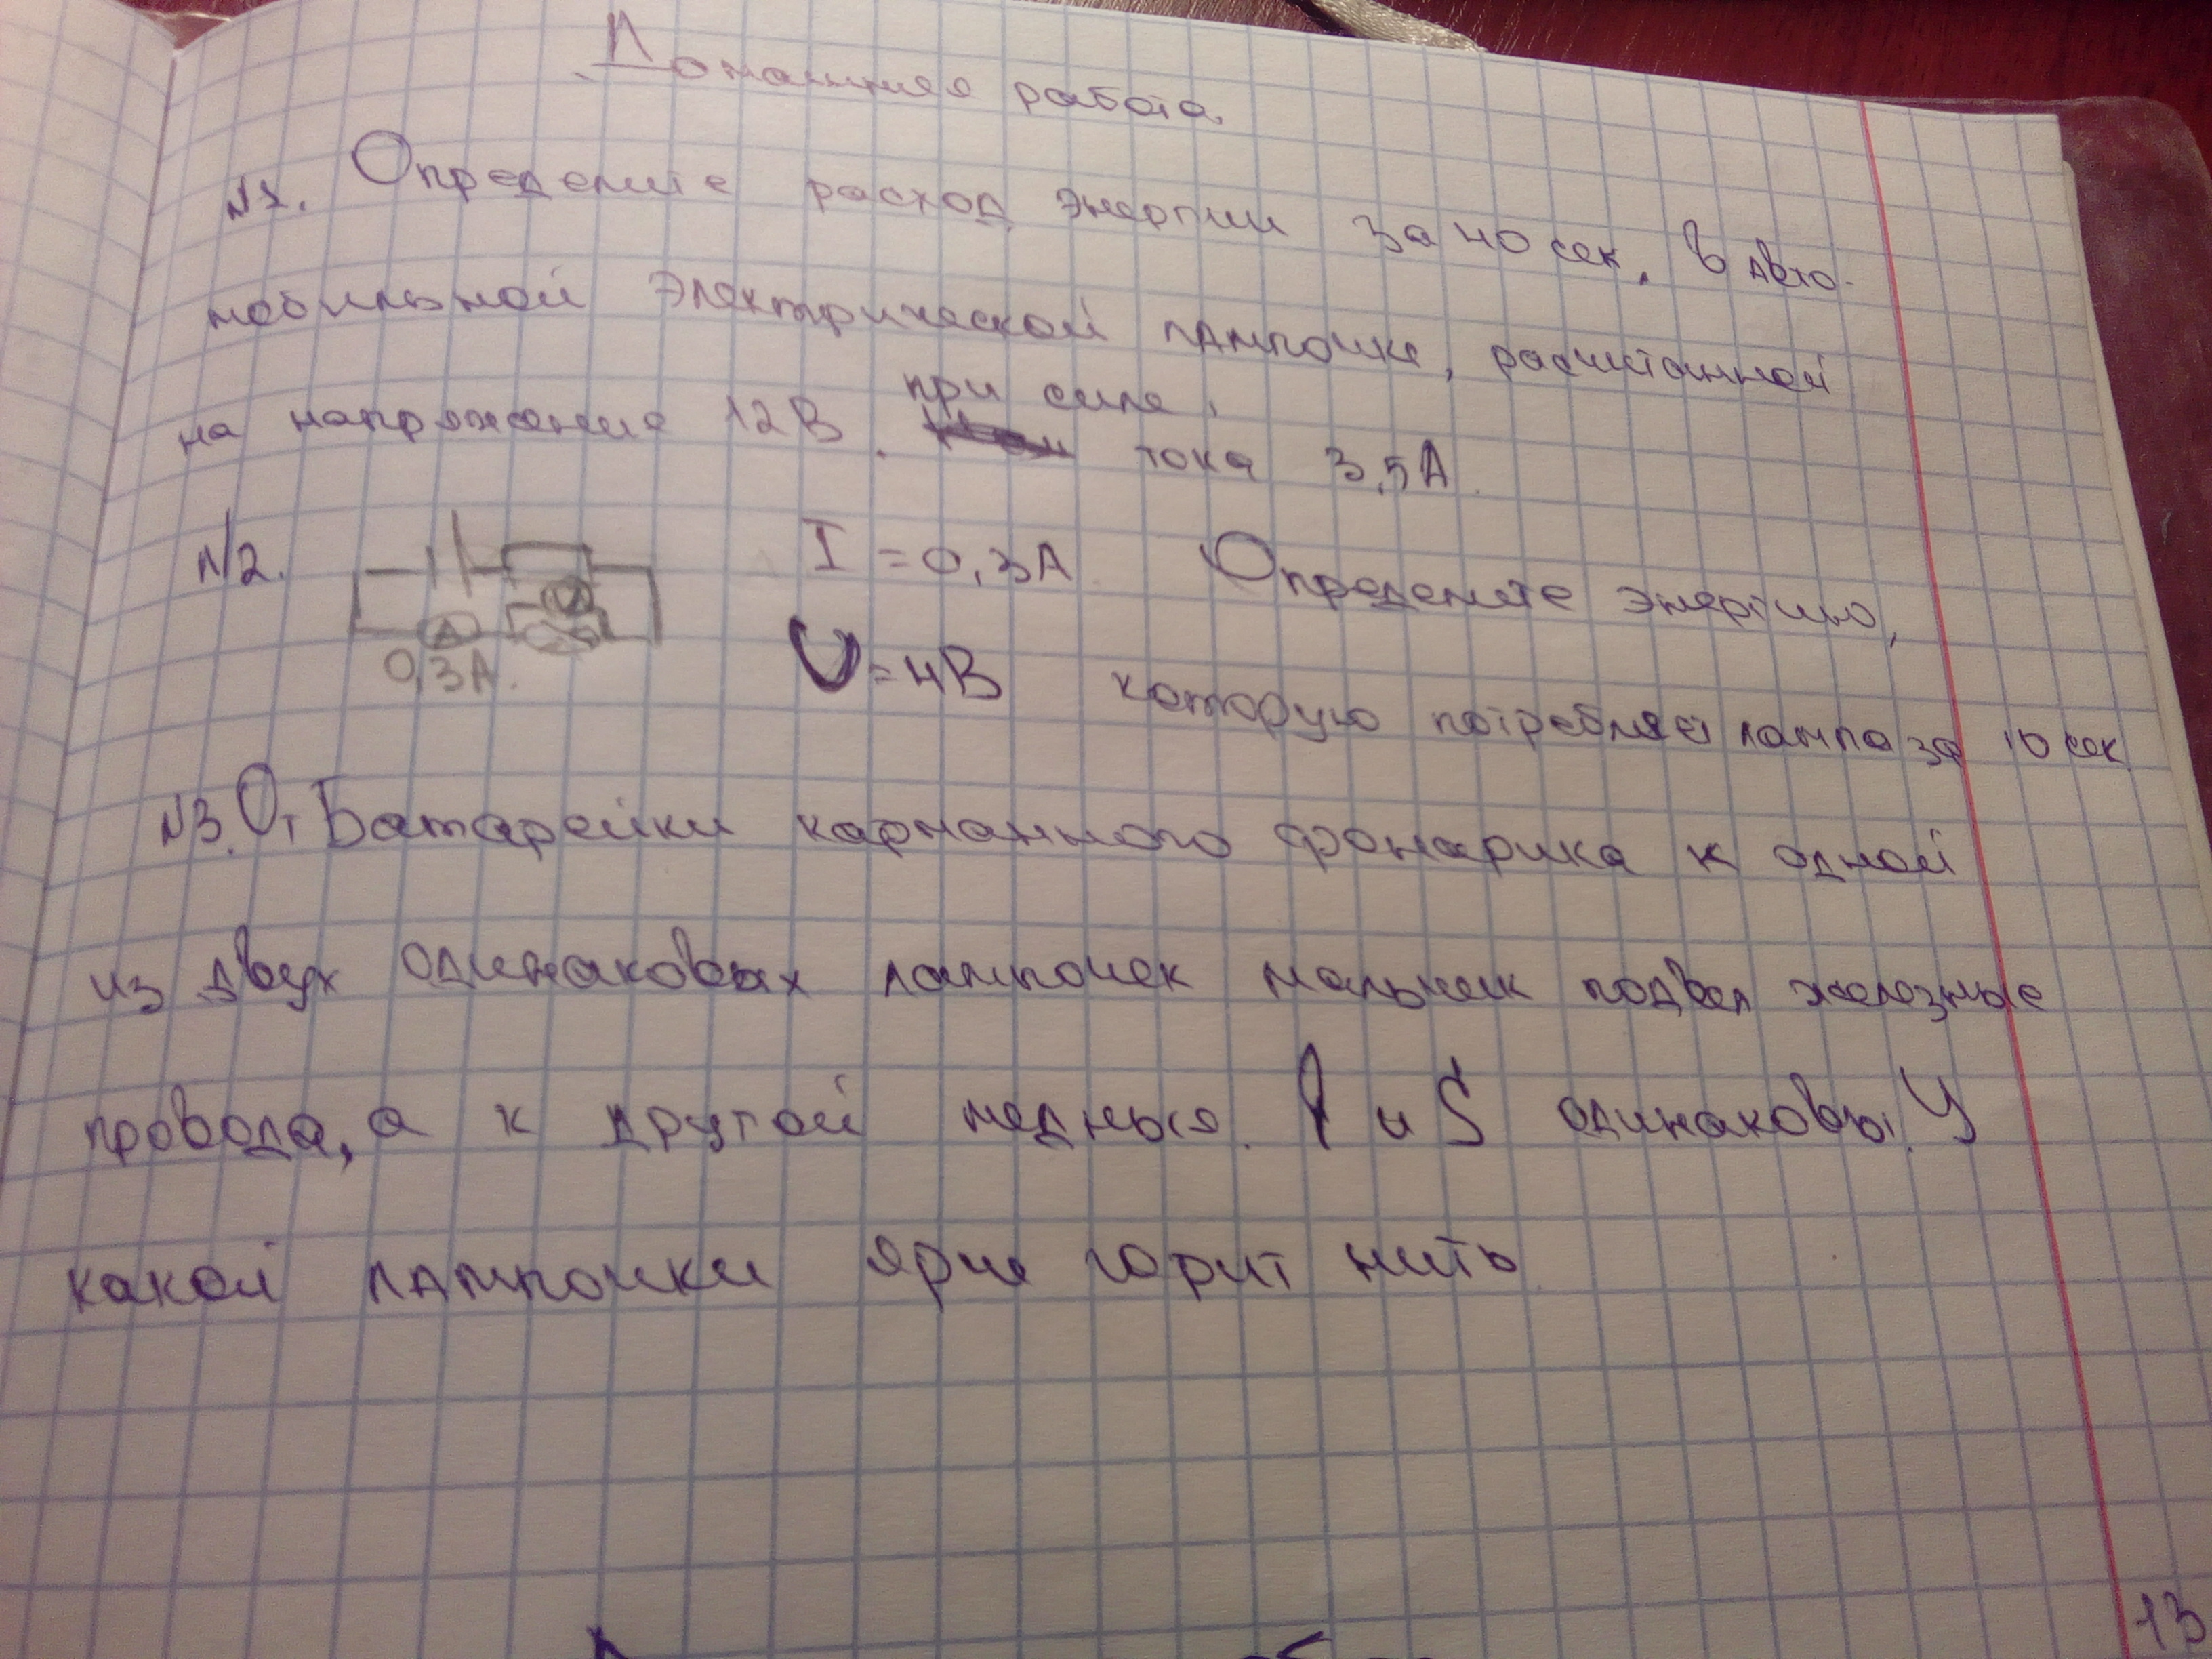 Домашняя работа.
№1. Определите расход энергии за 40 сек. в авто-
мобильной электрической лампочке, расчитанной
на напряжение 12В. при силе, тока 3,5А.
№2. I = 0,3А Определите энергию,
А
0,3А. U = 4В которую потребляет лампа за 10 сек.
№3. От Батарейки карманного фонарика к одной
из двух одинаковых лампочек мальчик подвел железные
провода, а к другой медные. l и S одинаковы. У
какой лампочки ярче горит нить
13